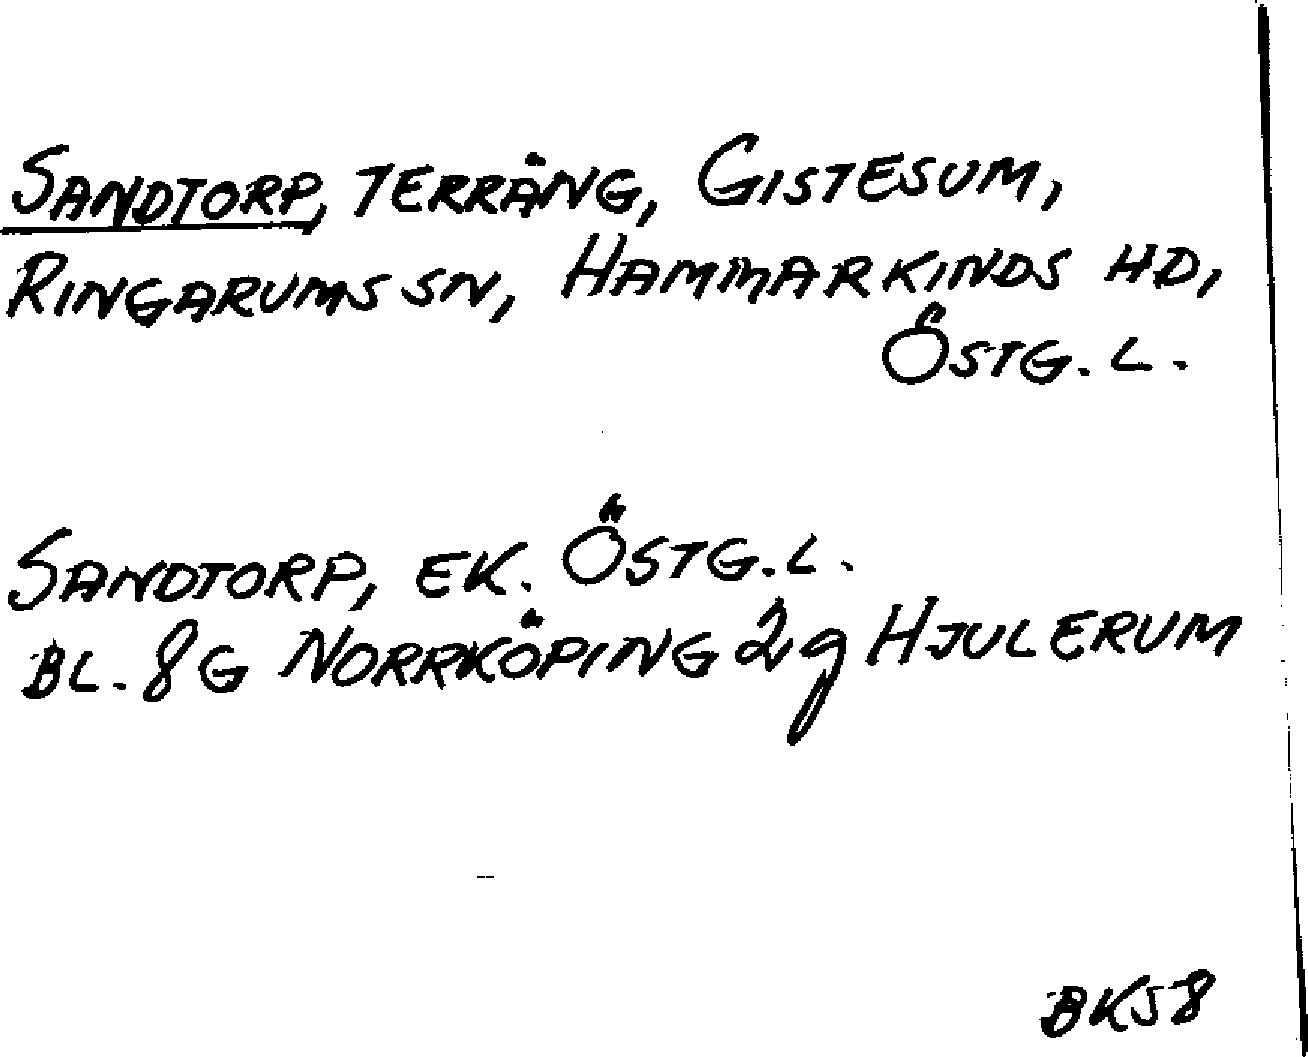 SANDTORP, TERRÄNG, GISTESUM,
RINGARUMS SN, HAMMARKINDS HD,
ÖSTG. L.
SANDTORP, EK. ÖSTG. L.
BL. 8G NORRKÖPING 2g HJULERUM
BK58